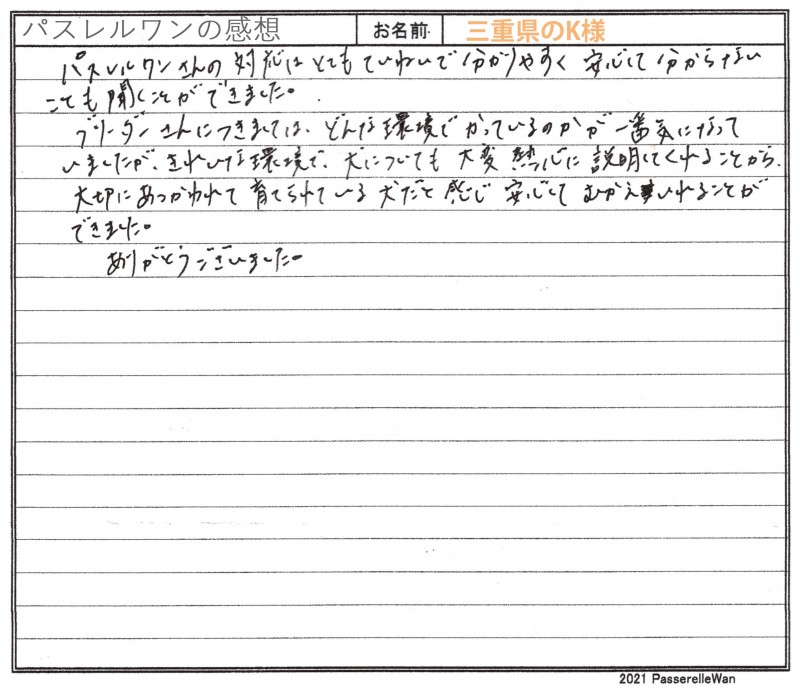 パスレルワンの感想 お名前 三重県のK様
パスレルワンさんの対応はとてもていねいで分かりやすく安心して分からない
ことも聞くことができました。
ブリーダーさんにつきましては、どんな環境でかっているのかが一番気になって
いましたが、きれいな環境で、犬についても大変熱心に説明してくれることから、
大切にあつかわれて育てられている犬だと感じ安心してむかえいれることが
できました。
ありがとうございました。
2021 PasserelleWan